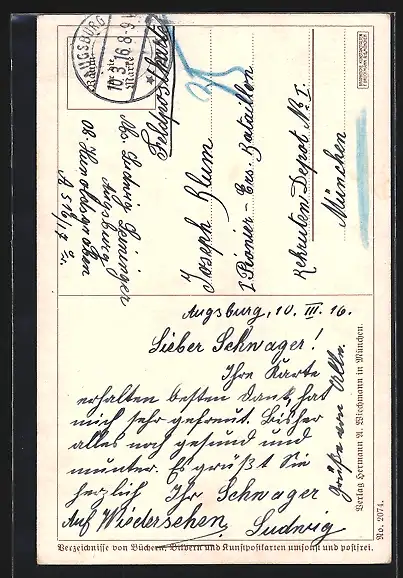 AUGSBURG
10.3.16.8-9V
Raum
für die
Marke
Feldpostkarte
Abs. Ludwig
Augsburg
Joseph Blum
I Pionier - Ers. Bataillon
Rekruten Depot No I.
München
Augsburg, 10. III. 16.
Lieber Schwager!
Ihre Karte
erhalten besten Dank, hat
mich sehr gefreut. Bisher
alles noch gesund und
munter. Es grüßt Sie
herzlich Ihr Schwager
Auf Wiedersehen. Ludwig
Grüße von Allen.
Verlag Hermann A. Wiechmann in München.
No. 2074.
Verzeichnisse von Büchern, Bildern und Kunstpostkarten umsonst und postfrei.